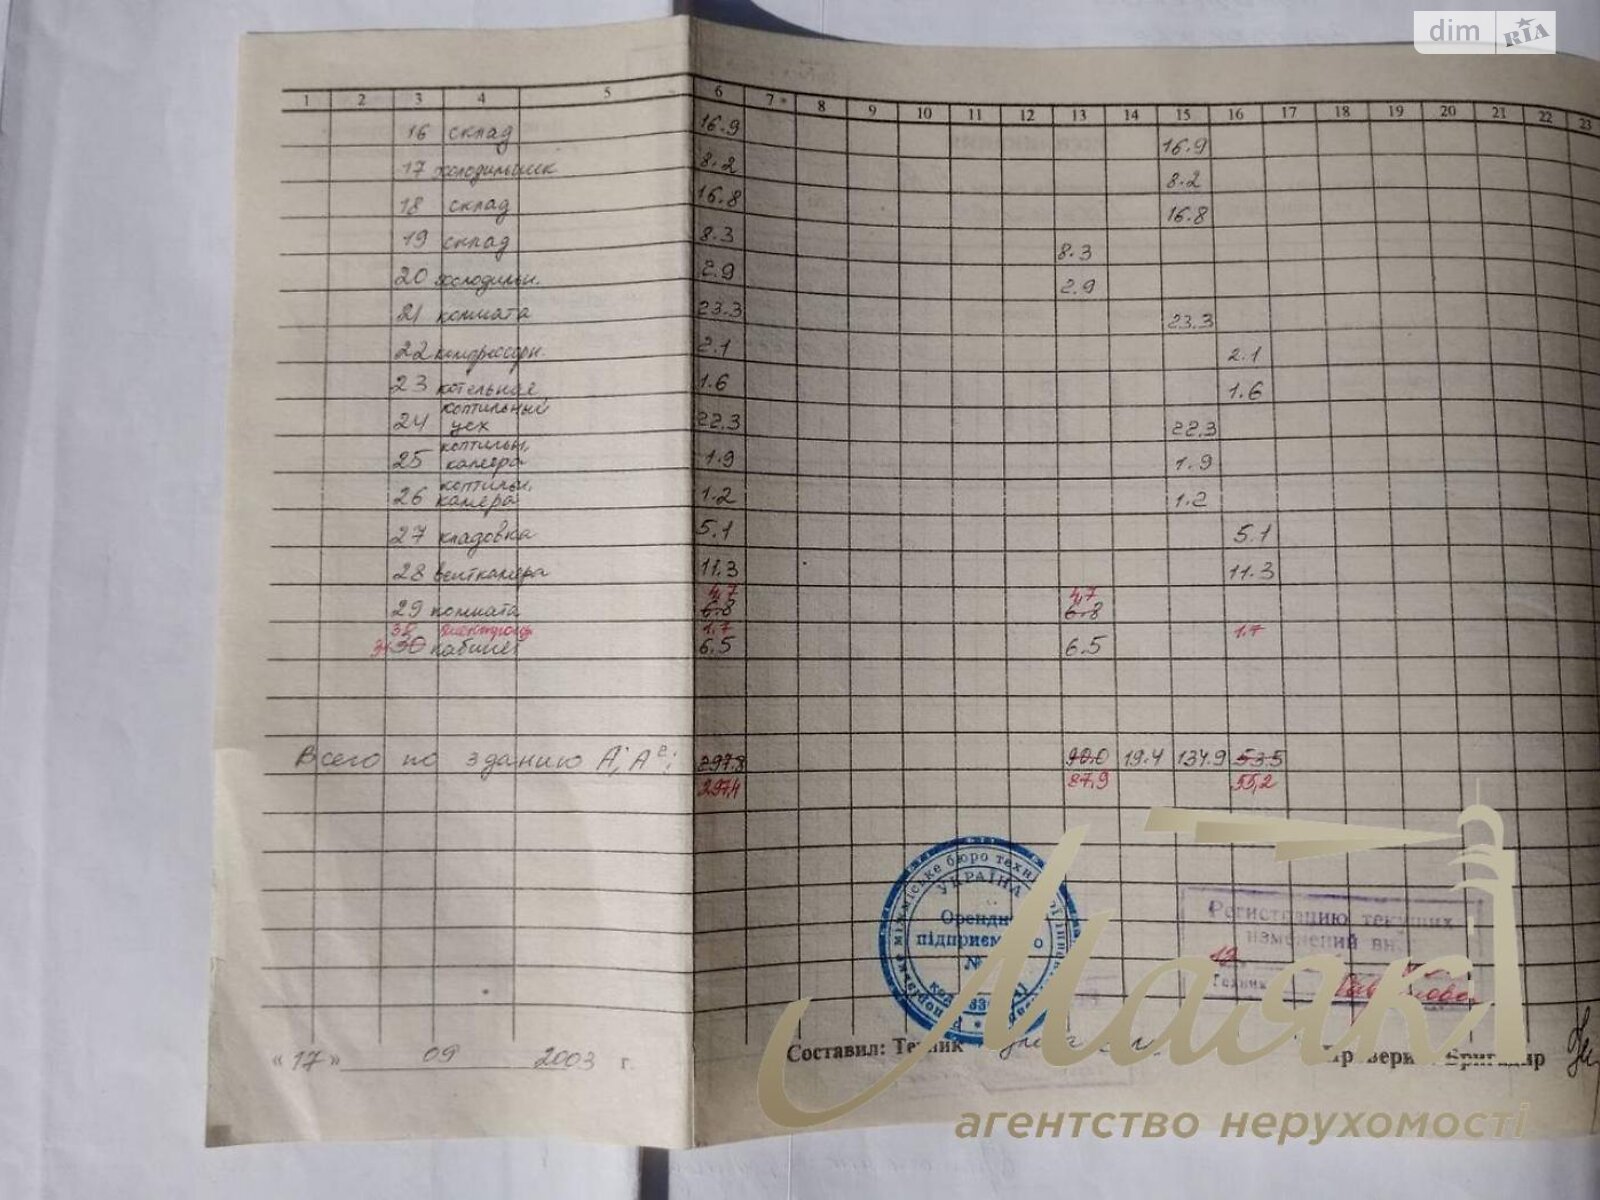 dim RIA
1 2 3 4 5 6 7 8 9 10 11 12 13 14 15 16 17 18 19 20 21 22 23
16 склад 16.9 16.9
17 холодильник 8.2 8.2
18 склад 16.8 16.8
19 склад 8.3 8.3
20 холодильн. 2.9 2.9
21 комната 23.3 23.3
22 компрессорн. 2.1 2.1
23 котельная 1.6 1.6
коптильный
24 цех 22.3 22.3
коптильн.
25 камера 1.9 1.9
коптильн.
26 камера 1.2 1.2
27 кладовка 5.1 5.1
28 венткамера 11.3 11.3
4,7 4,7
29 комната 6.8 6.8
1.7 1.7
31 30 кабинет 6.5 6.5
Всего по зданию А', А²; 297.8 90.0 19.4 134.9 53.5
297,4 87,9 55,2
УКРАЇНА
Орендн
підприєм о
№
Регистрацию текущих
изменений вн.
Техник
Составил: Техник
Бригадир
« 17 » 09 2003 г.
Маяк
агентство нерухомості